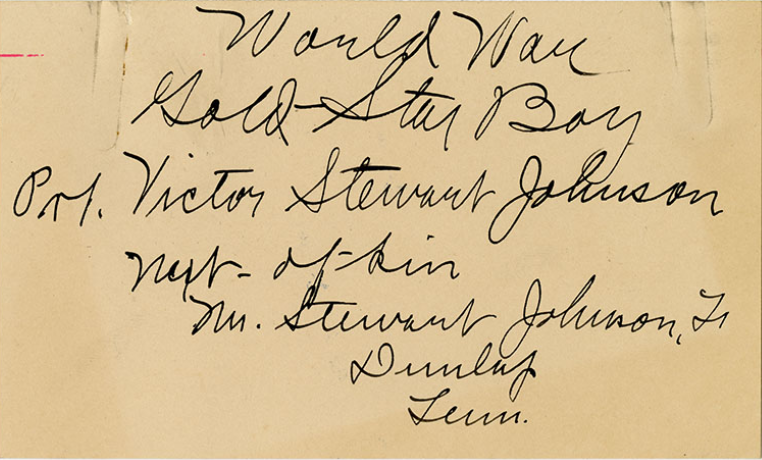 World War
Gold Star Boy
Pvt. Victor Stewart Johnson
Next-of-kin
Mr. Stewart Johnson, Fr
Dunlap
Tenn.